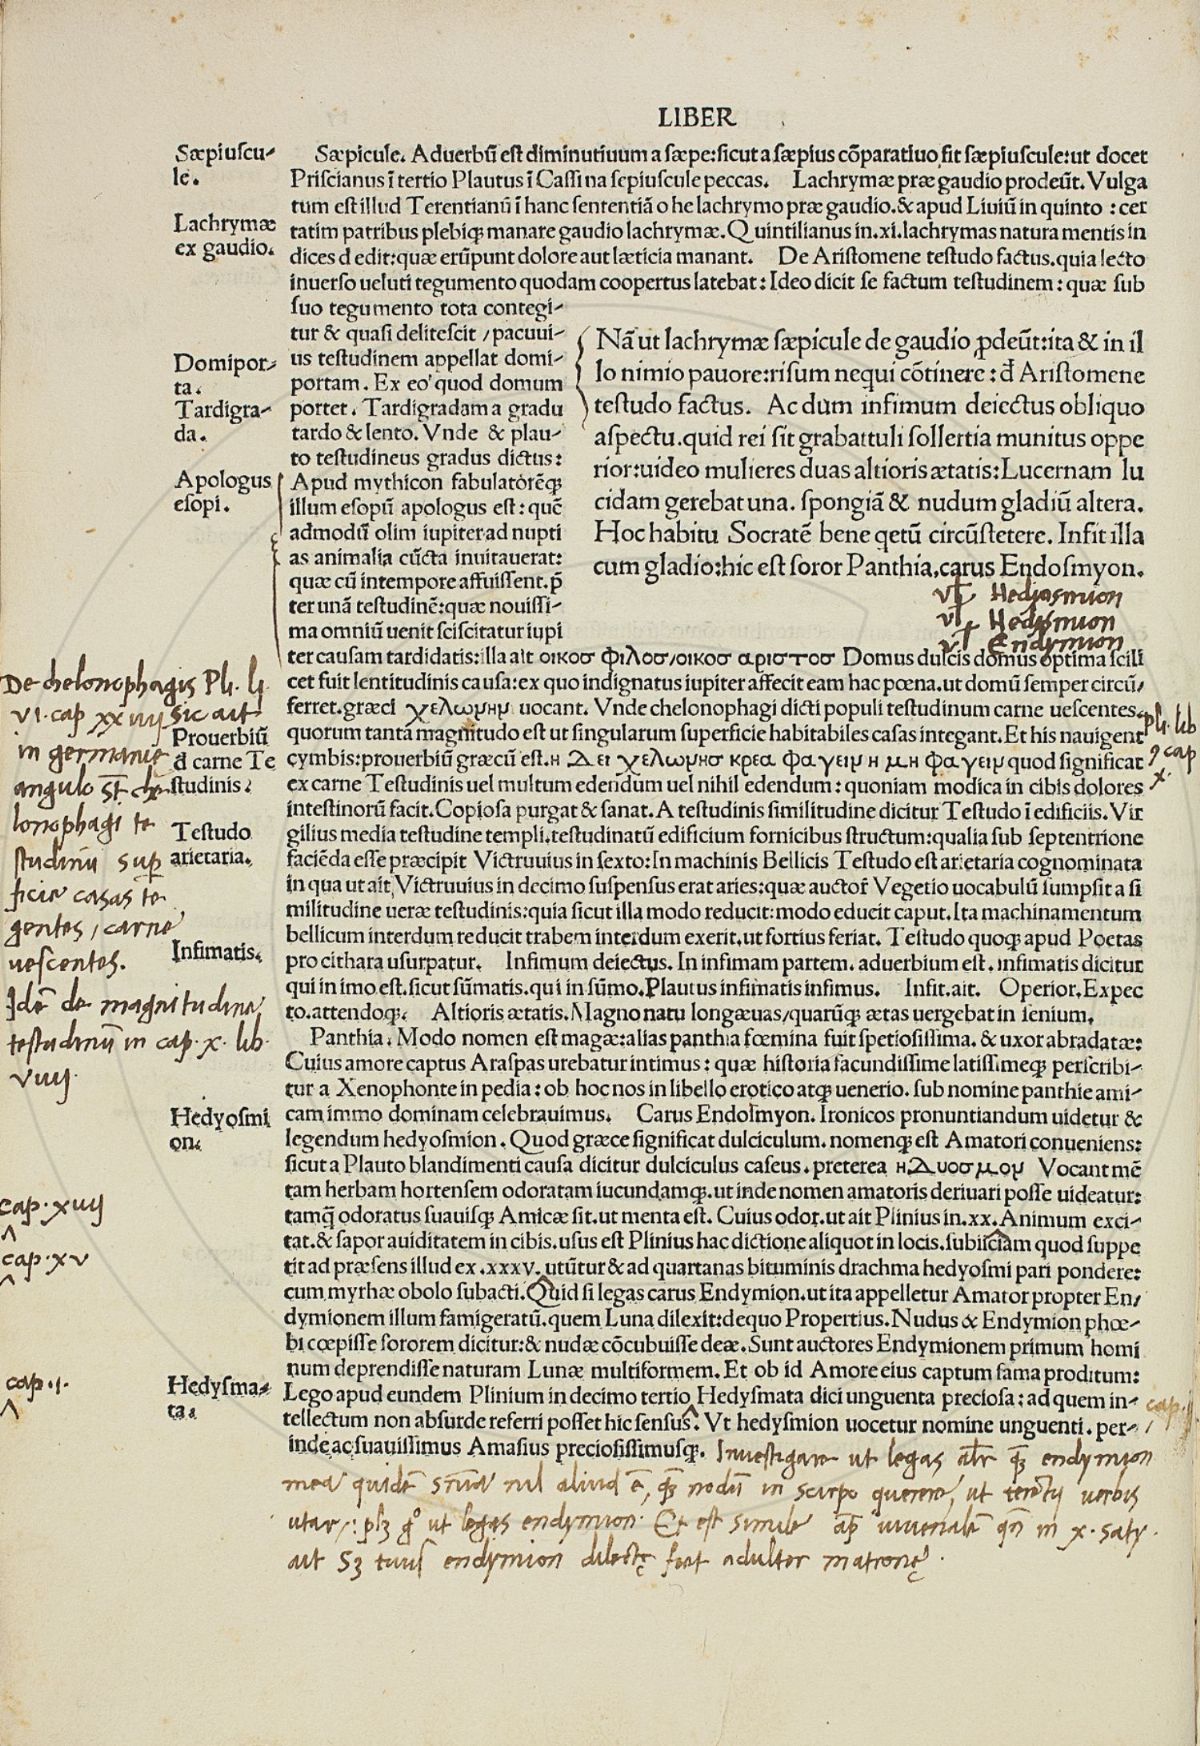 LIBER
Sæpiuscu-
le.
Lachrymæ
ex gaudio.
Domipor-
ta.
Tardigra-
da.
Apologus
esopi.
Sæpicule. Aduerbũ est diminutiuum a sæpe: sicut a sæpius cõparatiuo fit sæpiuscule: ut docet
Priscianus ĩ tertio Plautus ĩ Cassina sepiuscule peccas. Lachrymæ præ gaudio prodeũt. Vulga
tum est illud Terentianũ ĩ hanc sententiã o he lachrymo præ gaudio. & apud Liuiũ in quinto : cer
tatim patribus plebiqꝫ manare gaudio lachrymæ. Quintilianus in .xi. lachrymas natura mentis in
dices dedit: quæ erũpunt dolore aut læticia manant. De Aristomene testudo factus. quia lecto
inuerso ueluti tegumento quodam coopertus latebat: Ideo dicit se factum testudinem: quæ sub
suo tegumento tota contegi-
tur & quasi delitescit / pacuui-
us testudinem appellat domi-
portam. Ex eo quod domum
portet. Tardigradam a gradu
tardo & lento. Vnde & plau-
to testudineus gradus dictus:
Apud mythicon fabulatorẽqꝫ
illum esopũ apologus est: quẽ
admodũ olim iupiter ad nupti
as animalia cũcta inuitauerat:
quæ cũ intempore affuissent. p̃
ter unã testudinẽ: quæ nouissi-
ma omniũ uenit sciscitatur iupi
Nã ut lachrymæ sæpicule de gaudio ꝓdeũt: ita & in il
lo nimio pauore: risum nequi cõtinere : đ Aristomene
testudo factus. Ac dum infimum deiectus obliquo
aspectu. quid rei sit grabattuli sollertia munitus oppe
rior: uideo mulieres duas altioris ætatis: Lucernam lu
cidam gerebat una. spongiã & nudum gladiũ altera.
Hoc habitu Socratẽ bene qetũ circũstetere. Infit illa
cum gladio: hic est soror Panthia, carus Endosmyon.
Hediasmion
Hedysmion
Endymion
ter causam tardidatis: illa ait οικοσ φιλοσ/οικοσ αριστοσ Domus dulcis domus optima scili
cet fuit lentitudinis causa: ex quo indignatus iupiter affecit eam hac pœna. ut domũ semper circũ/
ferret. græci χελωνην uocant. Vnde chelonophagi dicti populi testudinum carne uescentes.
quorum tanta magnitudo est ut singularum superficie habitabiles casas integant. Et his nauigent
cymbis: prouerbiũ græcũ est. η Δει χελωνησ κρεα φαγειν η μη φαγειν quod significat
ex carne Testudinis uel multum edendum uel nihil edendum: quoniam modica in cibis dolores
intestinorũ facit. Copiosa purgat & sanat. A testudinis similitudine dicitur Testudo ĩ edificiis. Vir
gilius media testudine templi. testudinatũ edificium fornicibus structum: qualia sub septentrione
faciẽda esse præcipit Victruuius in sexto: In machinis Bellicis Testudo est arietaria cognominata
in qua ut ait Victruuius in decimo suspensus erat aries: quæ auctor Vegetio uocabulũ sumpsit a si
militudine ueræ testudinis: quia sicut illa modo reducit: modo educit caput. Ita machinamentum
bellicum interdum reducit trabem interdum exerit. ut fortius feriat. Testudo quoqꝫ apud Poetas
pro cithara usurpatur. Infimum deiectus. In infimam partem. aduerbium est. infimatis dicitur
qui in imo est. sicut sũmatis. qui in sũmo. Plautus infimatis infimus. Infit. ait. Operior. Expec
to. attendoqꝫ. Altioris ætatis. Magno natu longæuas, quarũqꝫ ætas uergebat in senium.
De chelonophagis Pli. li.
vi. cap xxiiii sic ait
in germanie
angulo sũt che
lonophagi te
studinũ sup
ficie casas te
gentes, carne
uescentes.
Idẽ de magnitudine
testudinũ in cap. x. lib.
viiii.
Prouerbiũ
đ carne Te
studinis.
Testudo
arietaria.
Infimatis.
Pli. lib
9 cap
x.
Panthia. Modo nomen est magæ: alias panthia fœmina fuit spetiosissima. & uxor abradatæ:
Cuius amore captus Araspas urebatur intimus : quæ historia facundissime latissimeqꝫ perscribi-
tur a Xenophonte in pedia: ob hoc nos in libello erotico atqꝫ uenerio. sub nomine panthie ami-
cam immo dominam celebrauimus. Carus Endosmyon. Ironicos pronuntiandum uidetur &
legendum hedyosmion. Quod græce significat dulciculum. nomenqꝫ est Amatori conueniens:
sicut a Plauto blandimenti causa dicitur dulciculus caseus. preterea ηΔυοσμον Vocant mẽ
tam herbam hortensem odoratam iucundamqꝫ. ut inde nomen amatoris deriuari posse uideatur:
tamq̃ odoratus suauisqꝫ Amicæ sit. ut menta est. Cuius odor. ut ait Plinius in .xx. Animum exci-
tat. & sapor auiditatem in cibis. usus est Plinius hac dictione aliquot in locis. subiiciam quod suppe
tit ad præsens illud ex .xxxv. utũtur & ad quartanas bituminis drachma hedyosmi pari pondere:
cum myrhæ obolo subacti. Quid si legas carus Endymion. ut ita appelletur Amator propter En/
dymionem illum famigeratũ. quem Luna dilexit: de quo Propertius. Nudus & Endymion phœ-
bi cœpisse sororem dicitur: & nudæ cõcubuisse deæ. Sunt auctores Endymionem primum homi
num deprendisse naturam Lunæ multiformem. Et ob id Amore eius captum fama proditum:
Lego apud eundem Plinium in decimo tertio Hedysmata dici unguenta preciosa: ad quem in-
tellectum non absurde referri posset hic sensus. Vt hedysmion uocetur nomine unguenti. per-
inde ac suauissimus Amasius preciosissimusqꝫ.
Hedyosmi
on.
cap. xiiii
cap. xv
cap. 1.
Hedysma-
ta.
cap.
Inuestigare ut legas endymion
mea quidẽ nil aliud ẽ, nodũ in scirpo querere, ut verbis
utar, ut legas endymion. Et est simile in x. saty.
ait endymion dilectę fiet adulter matronę.